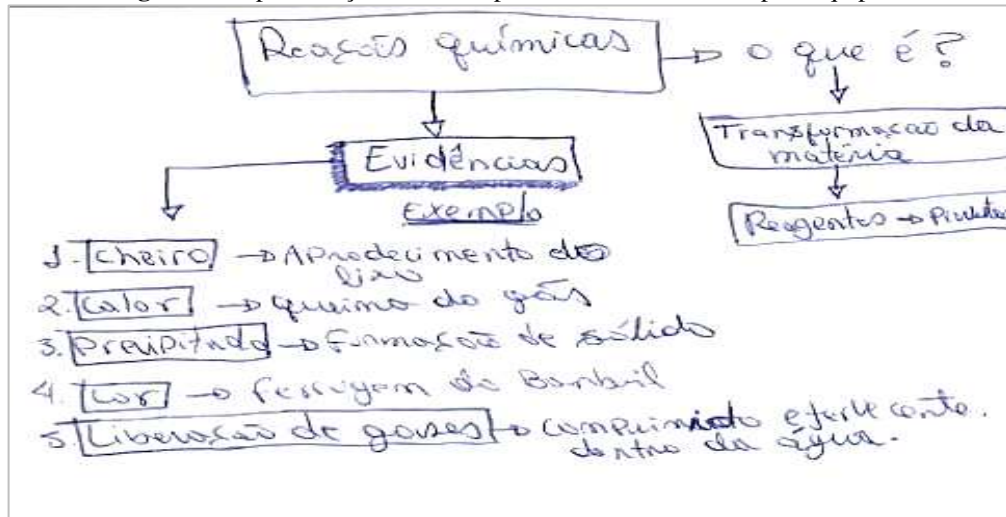 Reações químicas → o que é?
Transformação da
matéria
Evidências
Exemplo
Reagentes →
1. Cheiro → Aprodecimento do
lixo
2. Calor → queima do gás
3. Precipitado → Formação de sólido
4. Cor → Ferrugem do Bombril
5. Liberação de gases → comprimido efervecente.
dentro da água.